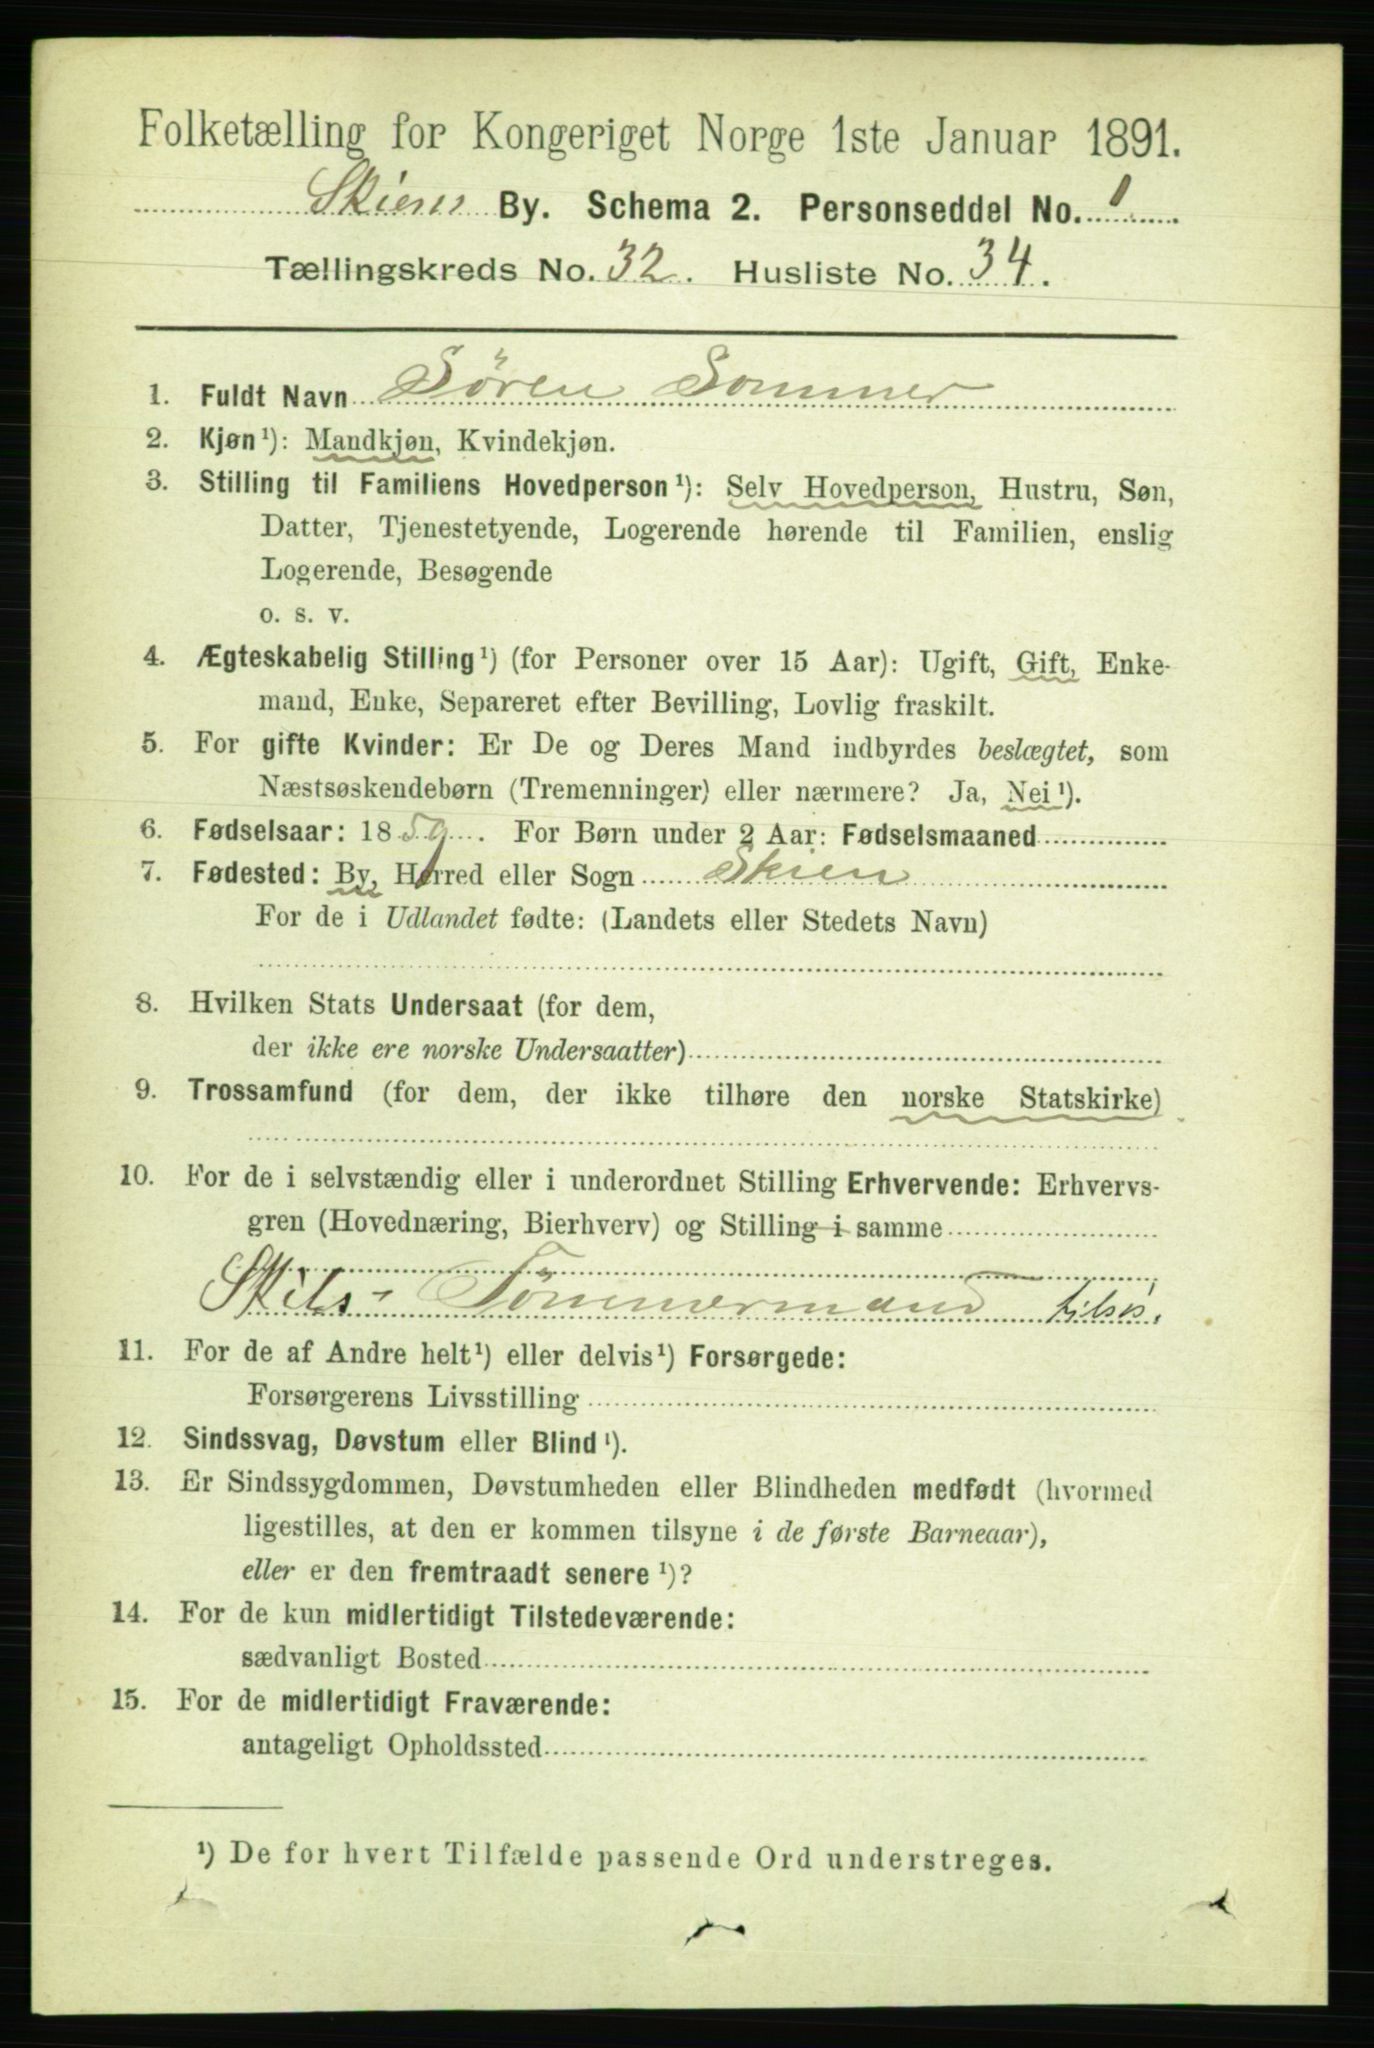 Folketælling for Kongeriget Norge 1ste Januar 1891.
Skiens By. Schema 2. Personseddel No. 1
Tællingskreds No. 32. Husliste No. 34.
1. Fuldt Navn Søren Sommer
2. Kjøn¹): Mandkjøn, Kvindekjøn.
3. Stilling til Familiens Hovedperson¹): Selv Hovedperson, Hustru, Søn,
Datter, Tjenestetyende, Logerende hørende til Familien, enslig
Logerende, Besøgende
o. s. v.
4. Ægteskabelig Stilling¹) (for Personer over 15 Aar): Ugift, Gift, Enke-
mand, Enke, Separeret efter Bevilling, Lovlig fraskilt.
5. For gifte Kvinder: Er De og Deres Mand indbyrdes beslægtet, som
Næstsøskendebørn (Tremenninger) eller nærmere? Ja, Nei¹).
6. Fødselsaar: 1859. For Børn under 2 Aar: Fødselsmaaned
7. Fødested: By, Herred eller Sogn Skien
For de i Udlandet fødte: (Landets eller Stedets Navn)
8. Hvilken Stats Undersaat (for dem,
der ikke ere norske Undersaatter)
9. Trossamfund (for dem, der ikke tilhøre den norske Statskirke)
10. For de i selvstændig eller i underordnet Stilling Erhvervende: Erhvervs-
gren (Hovednæring, Bierhverv) og Stilling i samme
Skibs-Tömmermand tilsøs.
11. For de af Andre helt¹) eller delvis¹) Forsørgede:
Forsørgerens Livsstilling
12. Sindssvag, Døvstum eller Blind¹).
13. Er Sindssygdommen, Døvstumheden eller Blindheden medfødt (hvormed
ligestilles, at den er kommen tilsyne i de første Barneaar),
eller er den fremtraadt senere¹)?
14. For de kun midlertidigt Tilstedeværende:
sædvanligt Bosted
15. For de midlertidigt Fraværende:
antageligt Opholdssted
¹) De for hvert Tilfælde passende Ord understreges.